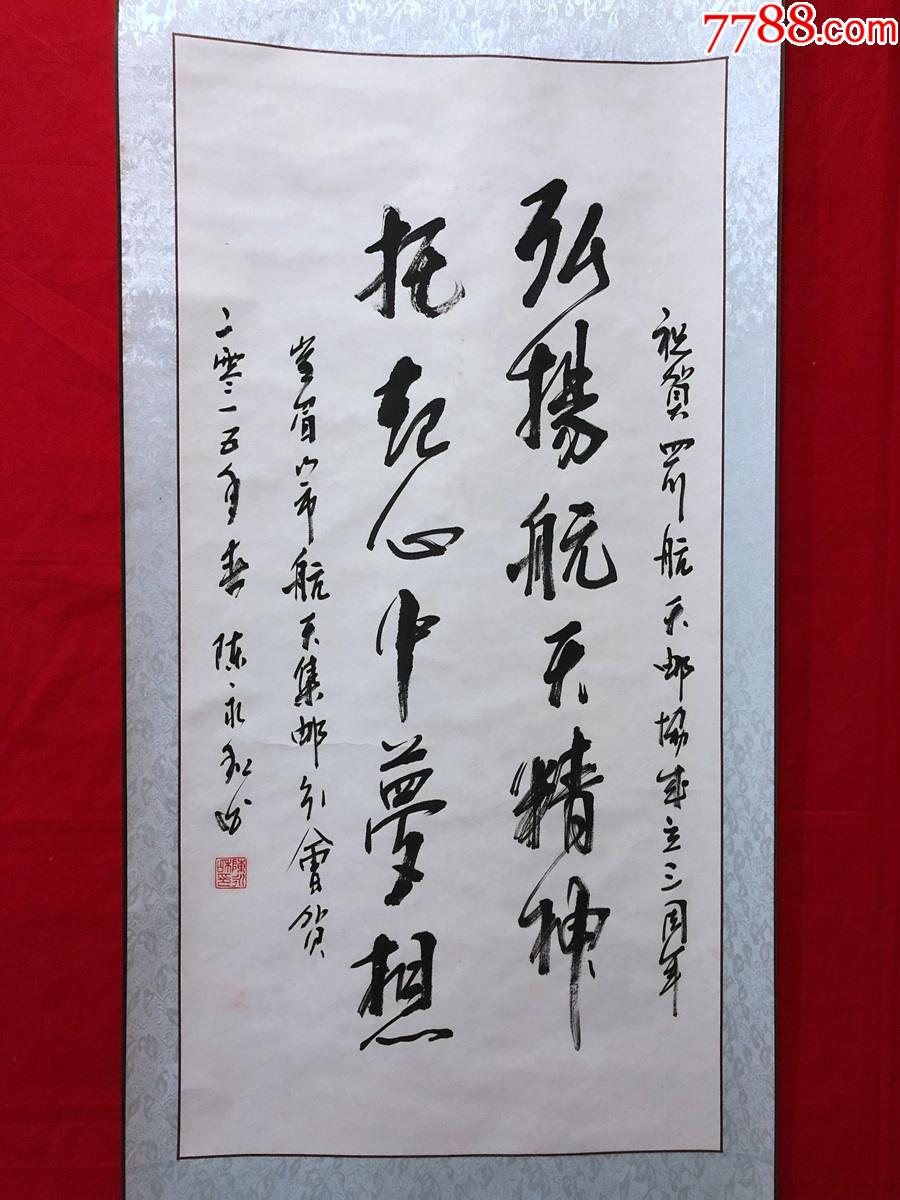 7788.com
祝賀四川航天邮協成立三周年
弘揚航天精神
托起心中夢想
眉山市航天集邮分會贺
二零一五年春 陈永和